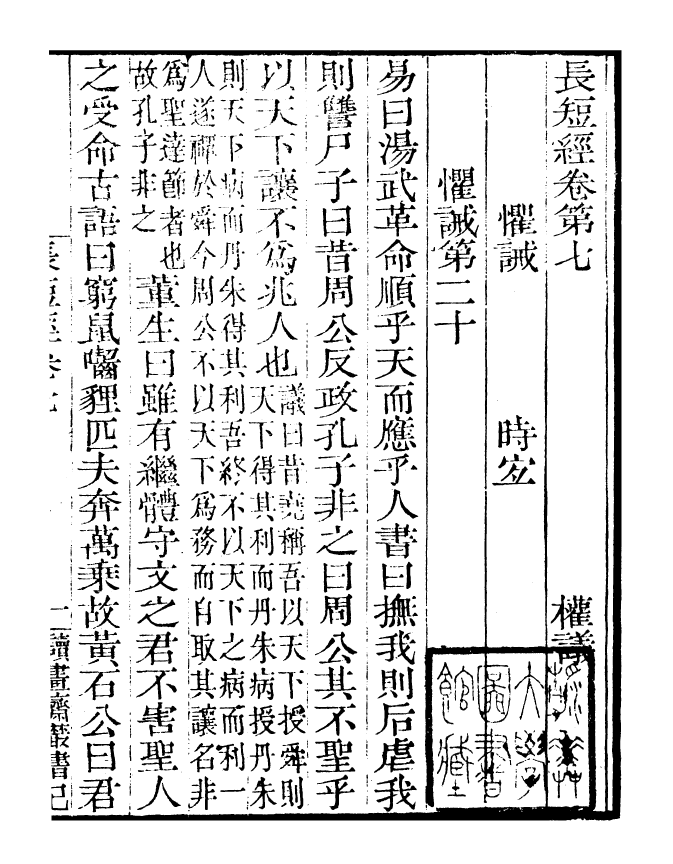 長短經卷第七　權議
懼誡　時宐
懼誡第二十
易曰湯武革命順乎天而應乎人書曰撫我則后虐我
則讐尸子曰昔周公反政孔子非之曰周公其不聖乎
以天下讓不爲兆人也
議曰昔堯稱吾以天下授舜則
天下得其利而丹朱病授丹朱
則天下病而丹朱得其利吾終不以天下之病而利一
人遂禪於舜今周公不以天下爲務而自取其讓名非
爲聖達節者也
故孔子非之
董生曰雖有繼體守文之君不害聖人
之受命古語曰窮鼠嚙貍匹夫奔萬乗故黃石公曰君
長短經卷七　讀畫齋叢書己
大學
圖書
館藏